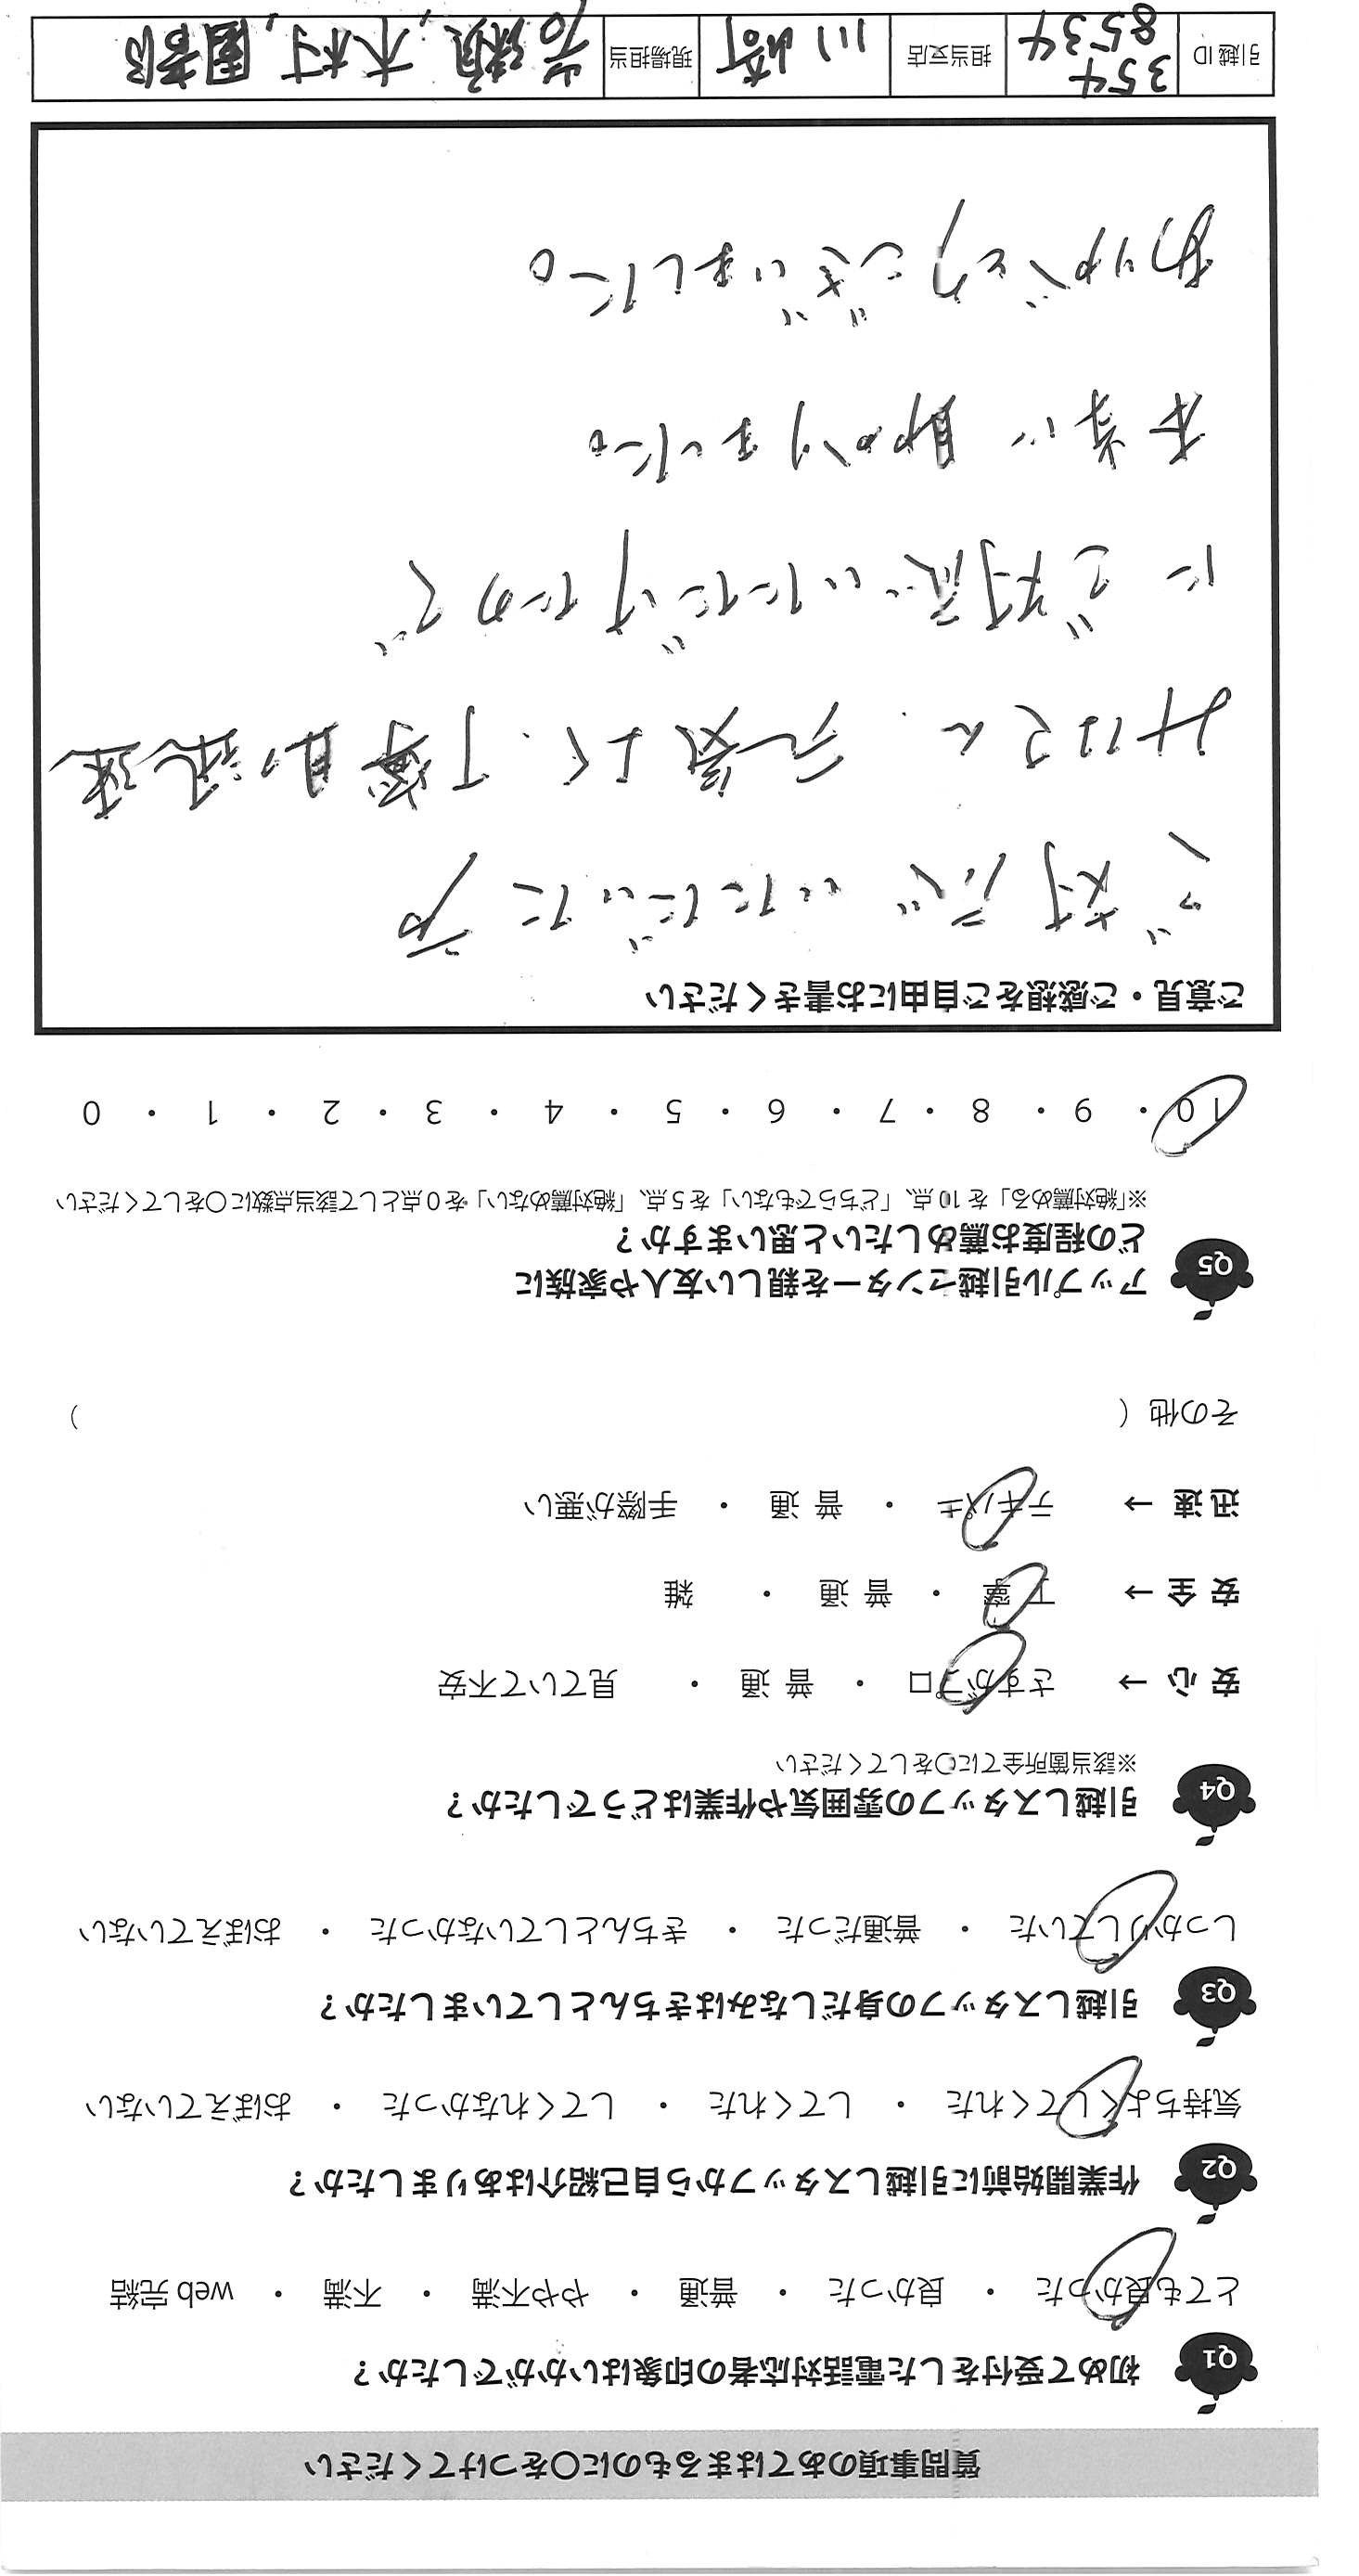 質問事項のあてはまるものに〇をつけてください
Q1 初めて受付をした電話対応者の印象はいかがでしたか？
とても良かった ・ 良かった ・ 普通 ・ やや不満 ・ 不満 ・ web 完結
Q2 作業開始前に引越しスタッフから自己紹介はありましたか？
気持ちよくしてくれた ・ してくれた ・ してくれなかった ・ おぼえていない
Q3 引越しスタッフの身だしなみはきちんとしていましたか？
しっかりしていた ・ 普通だった ・ きちんとしていなかった ・ おぼえていない
Q4 引越しスタッフの雰囲気や作業はどうでしたか？
※該当箇所全てに〇をしてください
安心 → さすがプロ ・ 普通 ・ 見ていて不安
安全 → 丁寧 ・ 普通 ・ 雑
迅速 → テキパキ ・ 普通 ・ 手際が悪い
その他（ ）
Q5 アップル引越センターを親しい友人や家族に
どの程度お薦めしたいと思いますか？
※「絶対薦める」を 10 点、「どちらでもない」を 5 点、「絶対薦めない」を 0 点として該当点数に〇をしてください
10 ・ 9 ・ 8 ・ 7 ・ 6 ・ 5 ・ 4 ・ 3 ・ 2 ・ 1 ・ 0
ご意見・ご感想をご自由にお書きください
ご対応いただいた方
皆さん、元気よく、丁寧且つ迅速
にご対応いただけたので
本当に助かりました。
ありがとうございました。
引越 ID 354 8534 担当支店 川崎 現場担当 岩瀬, 木村, 園部